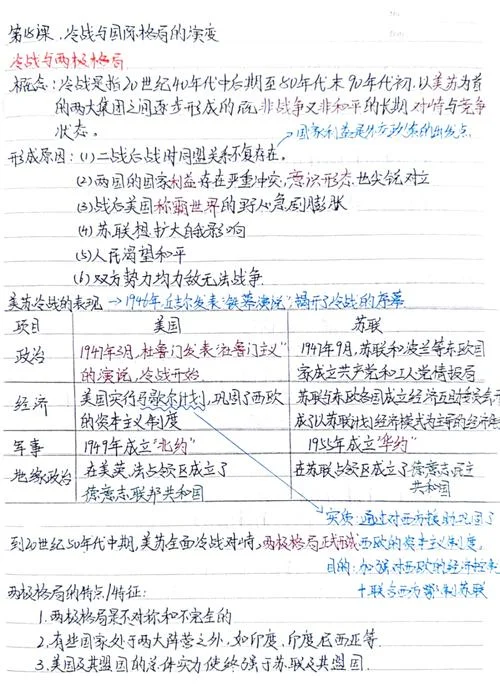 第18课、冷战与国际格局的演变
冷战与两极格局
概念:冷战是指20世纪40年代中后期至80年代末90年代初,以美苏为首
的两大集团之间逐步形成的既非战争又非和平的长期对峙与竞争
状态。
→国家利益是外交政策的出发点
形成原因:(1)二战后战时同盟关系不复存在。
(2)两国的国家利益存在严重冲突,意识形态也尖锐对立
(3)战后美国称霸世界的野心急剧膨胀
(4)苏联想扩大自己影响
(5)人民渴望和平
(6)双方势力均力敌无法战争.
美苏冷战的表现 →1946年丘吉尔发表"铁幕演说",揭开了冷战的序幕
项目 美国 苏联
政治 1947年3月,杜鲁门发表"杜鲁门主义" 1947年9月,苏联和波兰等东欧国
的演说,冷战开始. 家成立共产党和工人党情报局
经济 美国实行马歇尔计划,巩固了西欧 苏联与东欧各国成立经济互助委员会,形
的资本主义制度 成了以苏联计划经济模式为主导的经济
军事 1949年成立"北约" 1955年成立"华约"
地缘政治 在美、英、法占领区成立了 在苏联占领区成立了德意志民主
德意志联邦共和国 共和国
实质:通过对西方援助巩固了
到20世纪50年代中期,美苏全面冷战对峙,两极格局正式形成 西欧的资本主义制度.
目的:加强对西欧的经济控制
两极格局的特点/特征: +联合西方遏制苏联
1.两极格局是不对称和不完全的
2.有些国家处于两大阵营之外,如印度、印度尼西亚等.
3.美国及其盟国的总体实力使终强于苏联及其盟国.